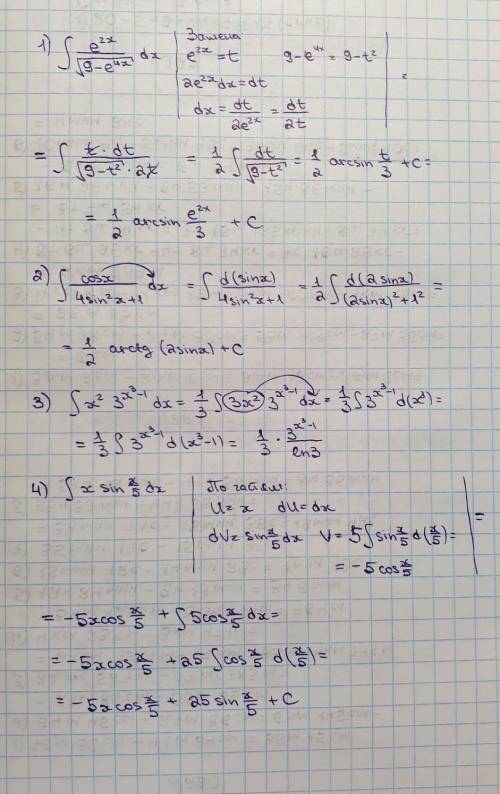 1) ∫ e^{2x}/√(9-e^{4x}) dx | Замена
e^{2x} = t   9-e^{4x} = 9-t²
2e^{2x}dx = dt
dx = dt/2e^{2x} = dt/2t | =
= ∫ t·dt/(√(9-t²)·2t) = 1/2 ∫ dt/√(9-t²) = 1/2 arcsin t/3 + C =
= 1/2 arcsin e^{2x}/3 + C
2) ∫ cosx/(4sin²x+1) dx = ∫ d(sinx)/(4sin²x+1) = 1/2 ∫ d(2sinx)/((2sinx)²+1²) =
= 1/2 arctg (2sinx) + C
3) ∫ x² 3^{x³-1} dx = 1/3 ∫ 3x² 3^{x³-1} dx = 1/3 ∫ 3^{x³-1} d(x³) =
= 1/3 ∫ 3^{x³-1} d(x³-1) = 1/3 · 3^{x³-1}/ln3
4) ∫ x sin x/5 dx | По частям:
U = x   dU = dx
dV = sin x/5 dx   V = 5∫ sin x/5 d(x/5) =
= -5cos x/5 | =
= -5xcos x/5 + ∫ 5cos x/5 dx =
= -5xcos x/5 + 25 ∫ cos x/5 d(x/5) =
= -5xcos x/5 + 25 sin x/5 + C